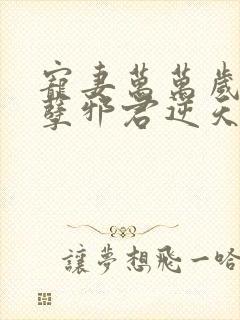 寵妻萬萬歲
孽邪君逆天
讓夢想飛一哈